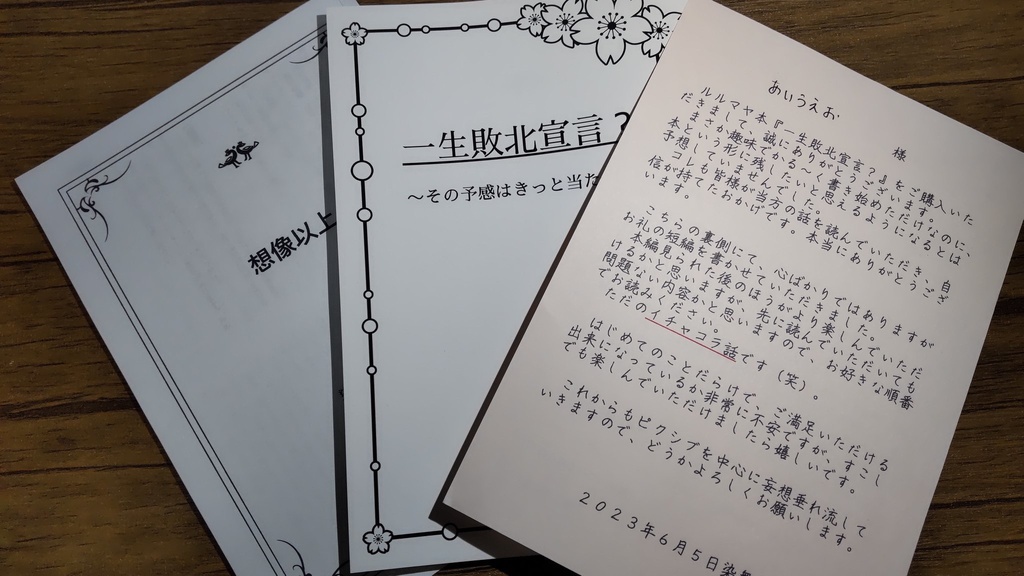 想像以上
一生敗北宣言?
～その予感はきっと当た
あいうえお
様
ルルマヤ本『一生敗北宣言?』をご購入いた
だきまして、誠にありがとうございます。
まさか趣味でかる～く書き始めただけなのに、
本という形に残したいと思えるようになるとは
予想していませんでした。
コレも皆様が当方の話を読んでいただき、自
信が持てたおかげです。本当にありがとうござ
います。
こちらの裏側にて、心ばかりではありますが
お礼の短編を書かせていただきました。
本編見られた後のほうがより楽しんでいただ
けるかと思いますが、先に読んでいただいても
問題ない内容かと思いますので、お好きな順番
でお読みください。
ただのイチャコラ話です(笑)。
はじめてのことだらけで、ご満足いただける
出来になっているか非常に不安ですが、すこし
でも楽しんでいただけましたら嬉しいです。
これからもピクシブを中心に妄想垂れ流して
いきますので、どうかよろしくお願いします。
2023年6月5日染